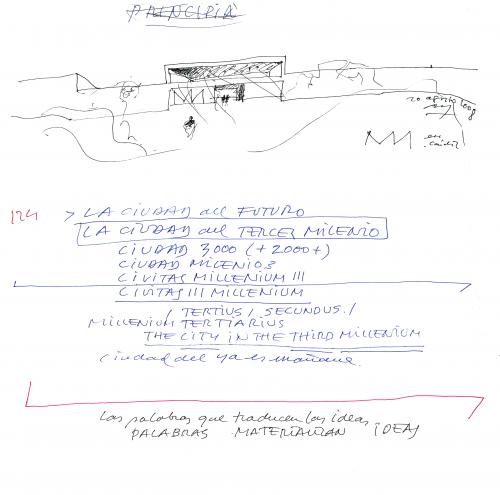 PRINCIPIA
20 agosto 2008
en
124 > LA CIUDAD del FUTURO
LA CIUDAD del TERCER MILENIO
CIUDAD 3000 (+2000+)
CIUDAD MILENIO 3
CIVITAS MILLENIUM III
CIVITAS III MILLENIUM
/ TERTIUS / SECUNDUS /
MILLENIUM TERTIARIUS
THE CITY IN THE THIRD MILLENIUM
ciudad del ya es mañana.
Las palabras que traducen las ideas
PALABRAS MATERIALIZAN IDEAS